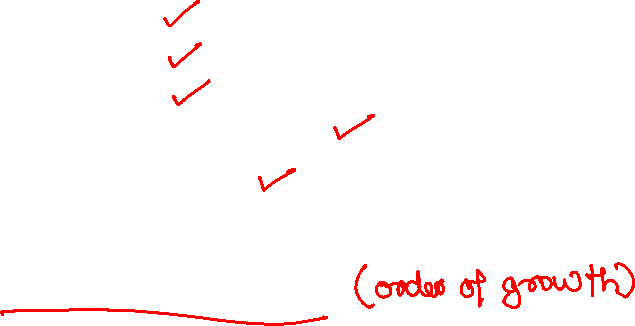 (order of growth)